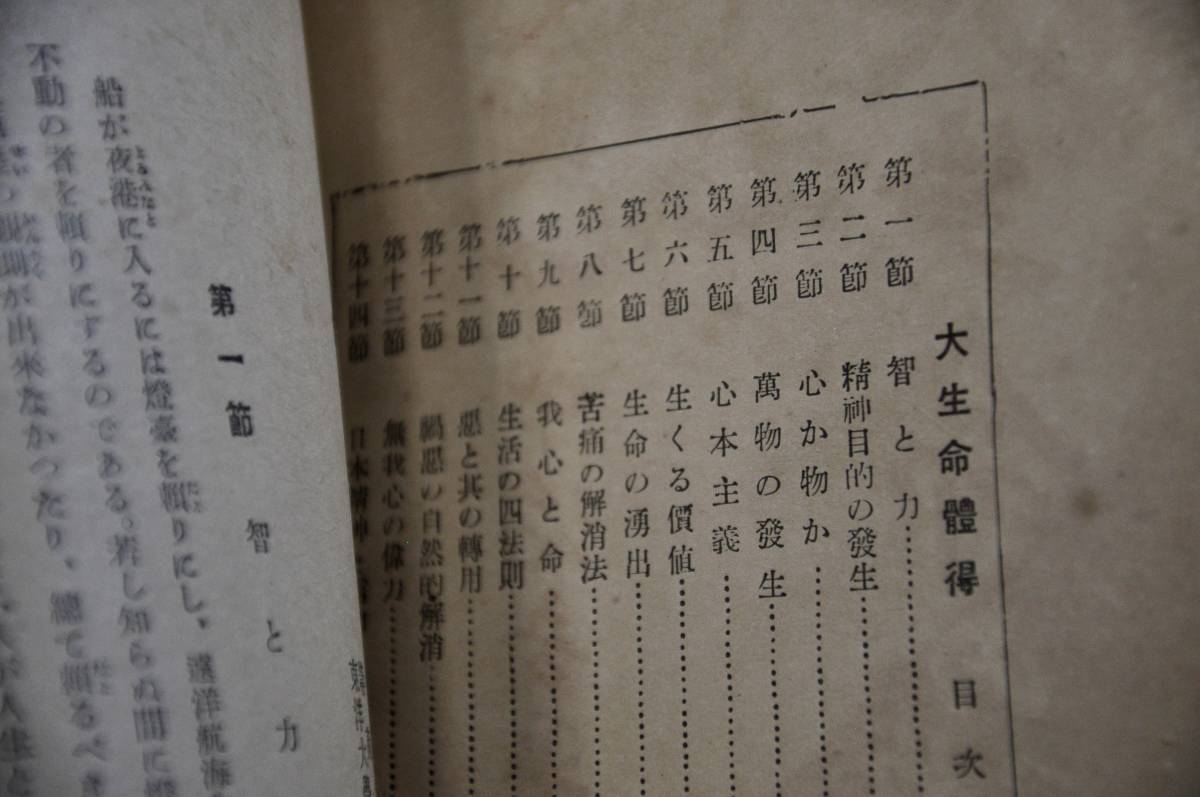 大生命體得 目次
第一節 智と力
第二節 精神目的の發生
第三節 心か物か
第四節 萬物の發生
第五節 心本主義
第六節 生くる價値
第七節 生命の湧出
第八節 苦痛の解消法
第九節 我心と命
第十節 生活の四法則
第十一節 惡と其の轉用
第十二節 禍惡の自然的解消
第十三節 無我心の偉力
第十四節 日本精神
第一節 智と力
船が夜港に入るには燈臺を頼りにし、遠洋航海
不動の者を頼りにするのである。若し知らぬ間に
が出來なかつたり、總て頼るべき